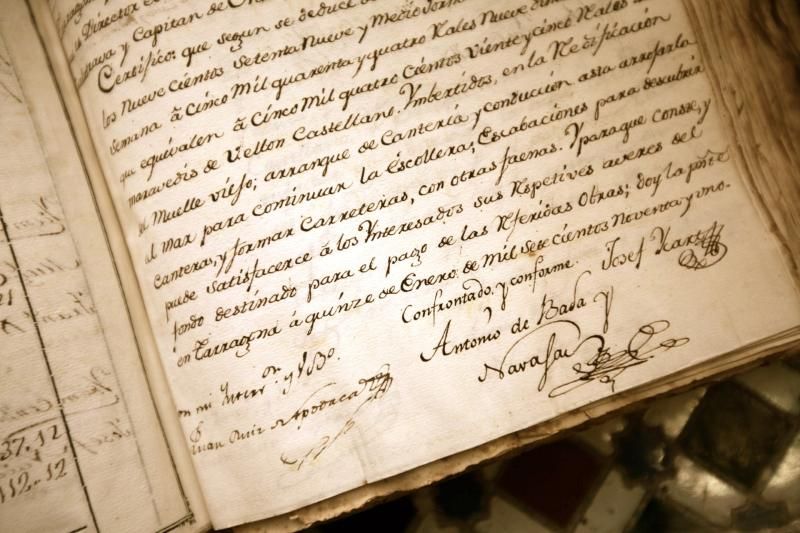 el Director e
inava y Capitan de
Certifico: que segun se deduce
los nueve cientos setenta Nueve y Medio
semana â Cinco Mil quarenta y quatro Rales Nueve
que equivalen â Cinco Mil quatro Cientos Viente y cinco Rales
maravedis de Vellon Castellano. Ymbertidos, en la Redificación
el Muelle viejo; arranque de Cantería y conducción asta arrojarla
al mar para Continuar la escollera; Escabaciones para descubrir
Canteras, y formar Carreteras, con otras faenas. Y para que conste, y
puede satisfacerce â los Ynteresados sus Respetives averes del
fondo destinado para el pago de las Referidas Obras; doy la pnte
en Tarragona â quinze de Enero de Mil Sete cientos Noventa y uno.
Confrontado, y conforme. Josef Ycart
Antonio de Bada y
Navajas
on mi Ynterv.on y V.o B.o
Juan Ruiz de Apodaca
37. 12
112.. 12